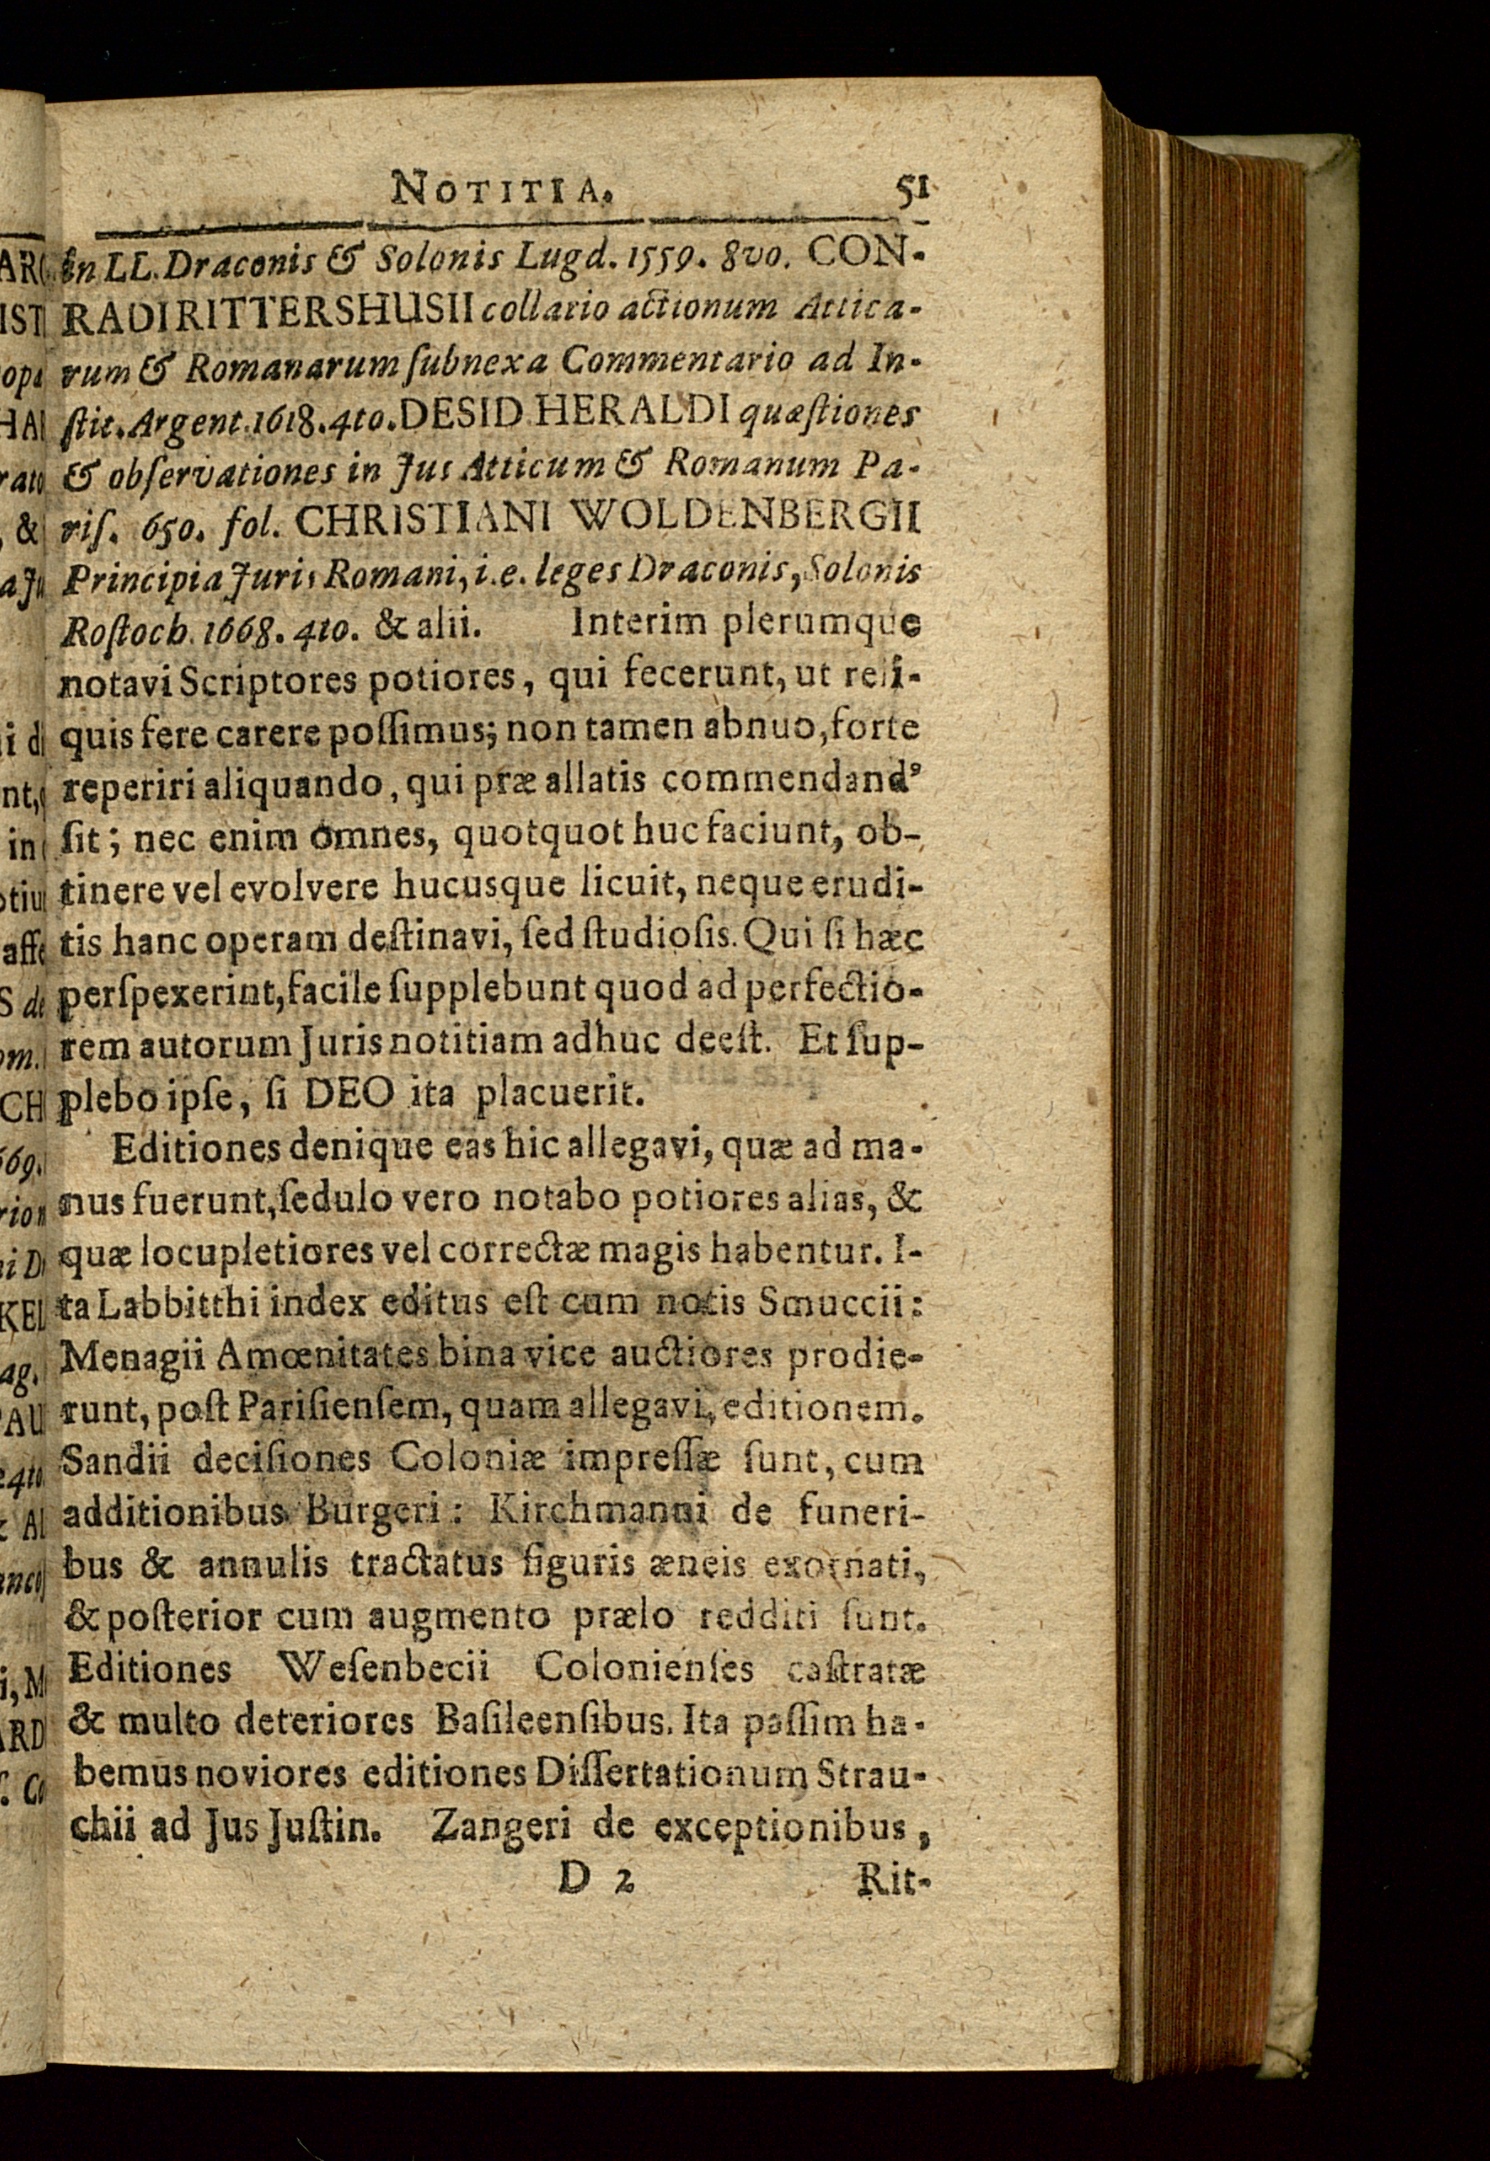 NOTITIA. 51
in LL. Draconis & Solonis Lugd. 1559. 8vo. CON-
RADI RITTERSHUSII collatio actionum Attica-
rum & Romanarum ſubnexa Commentario ad In-
ſtit. Argent. 1618. 4to. DESID HERALDI quæſtiones
& obſervationes in Jus Atticum & Romanum Pa-
riſ. 650. fol. CHRISTIANI WOLDENBERGII
Principia Juris Romani, i.e. leges Draconis, Solonis
Roſtoch. 1668. 4to. & alii. Interim plerumque
notavi Scriptores potiores, qui fecerunt, ut reli-
quis fere carere poſſimus; non tamen abnuo, forte
reperiri aliquando, qui præ allatis commendandꝰ
ſit; nec enim omnes, quotquot huc faciunt, ob-
tinere vel evolvere hucusque licuit, neque erudi-
tis hanc operam deſtinavi, ſed ſtudioſis. Qui ſi hæc
perſpexerint, facile ſupplebunt quod ad perfectio-
rem autorum Juris notitiam adhuc deeſt. Et ſup-
plebo ipſe, ſi DEO ita placuerit.
Editiones denique eas hic allegavi, quæ ad ma-
nus fuerunt, ſedulo vero notabo potiores alias, &
quæ locupletiores vel correctæ magis habentur. I-
ta Labbitthi index editus eſt cum notis Smuccii:
Menagii Amœnitates bina vice auctiores prodie-
runt, poſt Pariſienſem, quam allegavi, editionem.
Sandii deciſiones Coloniæ impreſſæ ſunt, cum
additionibus Burgeri: Kirchmanni de funeri-
bus & annulis tractatus figuris æneis exornati,
& poſterior cum augmento prælo redditi ſunt.
Editiones Weſenbecii Colonienſes caſtratæ
& multo deteriores Baſileenſibus. Ita paſſim ha-
bemus noviores editiones Diſſertationum Strau-
chii ad Jus Juſtin. Zangeri de exceptionibus,
D 2 Rit-